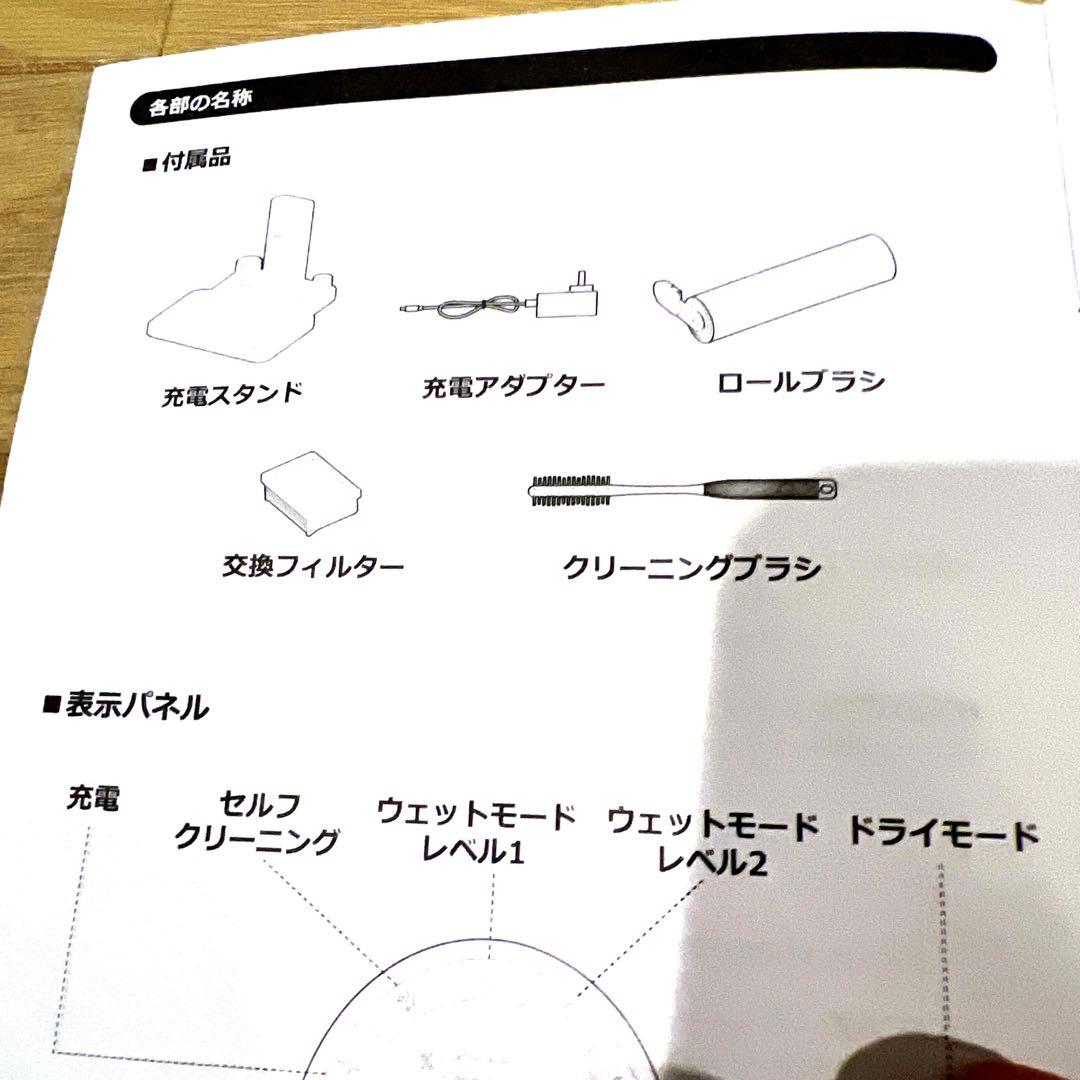 各部の名称
■付属品
充電スタンド
充電アダプター
ロールブラシ
交換フィルター
クリーニングブラシ
■表示パネル
充電
セルフ
クリーニング
ウェットモード
レベル1
ウェットモード
レベル2
ドライモード